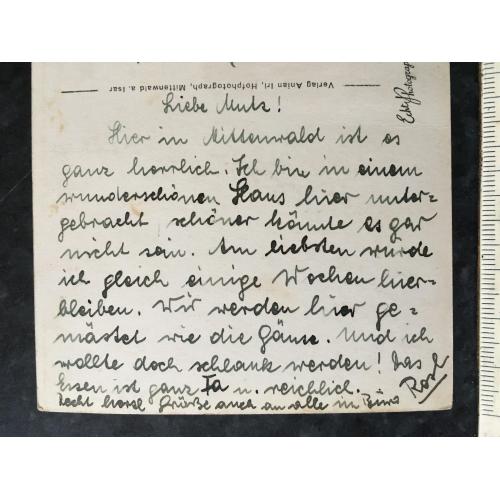 Verlag Anian Irl, Hofphotograph, Mittenwald a. Isar
Echte Photograp
Liebe Mutz!
Hier in Mittenwald ist es
ganz herrlich. Ich bin in einem
wunderschönen Haus hier unter=
gebracht schöner könnte es gar
nicht sein. Am liebsten würde
ich gleich einige Wochen hier-
bleiben. Wir werden hier ge=
mästet wie die Gänse. Und ich
wollte doch schlank werden! Das
Essen ist ganz Ia u. reichlich.
Recht herzl. Grüße auch an alle im Büro
Rosl